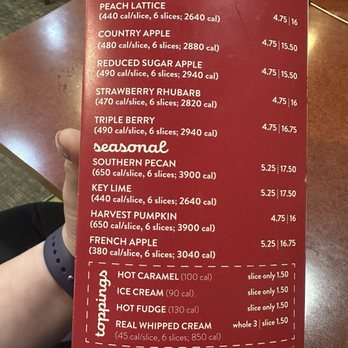 PEACH LATTICE
(440 cal/slice, 6 slices; 2640 cal) 4.75 | 16
COUNTRY APPLE
(480 cal/slice, 6 slices; 2880 cal) 4.75 | 15.50
REDUCED SUGAR APPLE
(490 cal/slice, 6 slices; 2940 cal) 4.75 | 15.50
STRAWBERRY RHUBARB
(470 cal/slice, 6 slices; 2820 cal) 4.75 | 16
TRIPLE BERRY
(490 cal/slice, 6 slices; 2940 cal) 4.75 | 16.75
seasonal
SOUTHERN PECAN 5.25 | 17.50
(650 cal/slice, 6 slices; 3900 cal)
KEY LIME 5.25 | 17.50
(440 cal/slice, 6 slices; 2640 cal)
HARVEST PUMPKIN 4.75 | 16
(650 cal/slice, 6 slices; 3900 cal)
FRENCH APPLE 5.25 | 16.75
(380 cal/slice, 8 slices; 3040 cal)
toppings
HOT CARAMEL (100 cal) slice only 1.50
ICE CREAM (90 cal) slice only 1.50
HOT FUDGE (130 cal) slice only 1.50
REAL WHIPPED CREAM whole 3 | slice 1.50
(45 cal/slice, 6 slices; 850 cal)